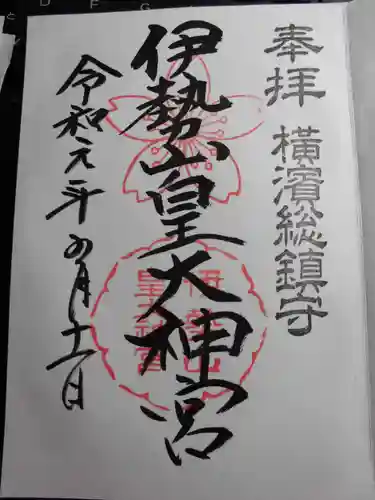 奉拝
横濱総鎮守
伊勢山皇大神宮
令和元年五月十一日
伊勢山
皇大神宮